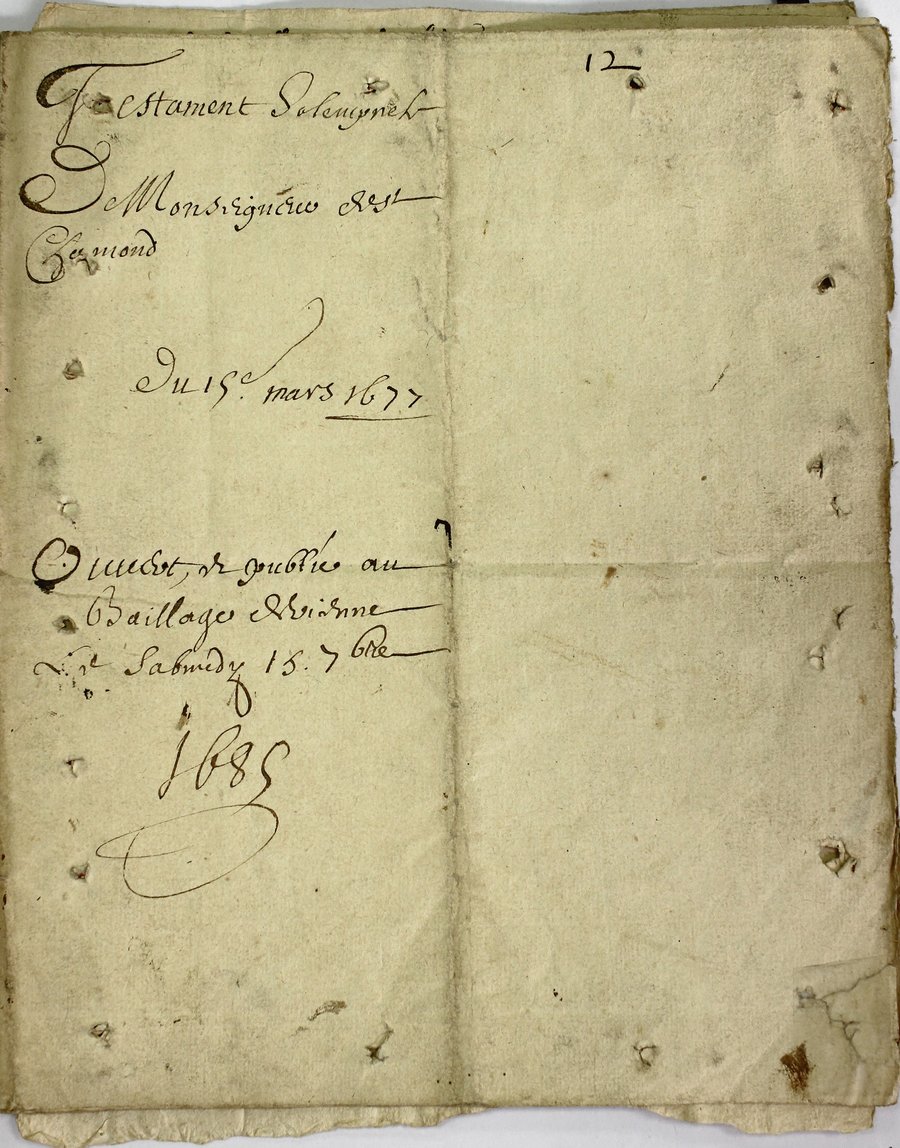 12
Testament Solempnel
De Monseigneur de st
Chamond
Du 15e. mars 1677
Ouuert, et publié au
Baillage de vienne
Le Sabmedy 15. 7bre
1685